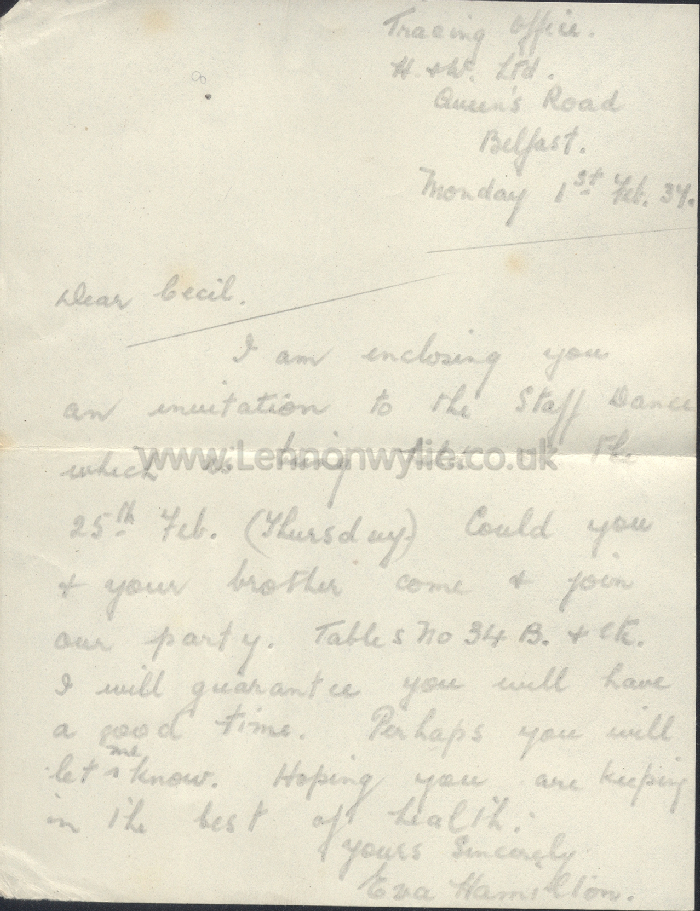 Tracing Office.
H. & W. Ltd.
Queen's Road
Belfast.
Monday 1st Feb. 37.
Dear Cecil.
I am enclosing you
an invitation to the Staff Dance
which is being the
www.Lennonwylie.co.uk
25th Feb. (Thursday) Could you
& your brother come & join
our party. Tables No 34 B. &
I will guarantee you will have
a good time. Perhaps you will
let me know. Hoping you are keeping
in the best of health.
Yours Sincerely
Eva Hamilton.